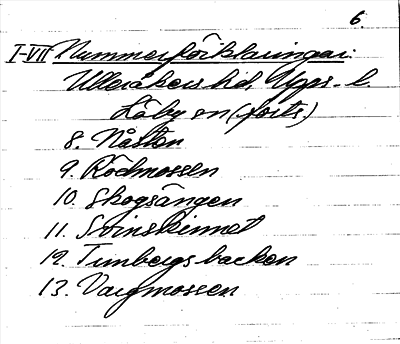 6.
I-VII Nummerförklaringar:
Ulleråkers hd, Upps. l.
Läby sn (forts.)
8. Nåsten
9. Rödmossen
10. Skogsängen
11. Svinskinnet
12. Timbergsbacken
13. Vargmossen